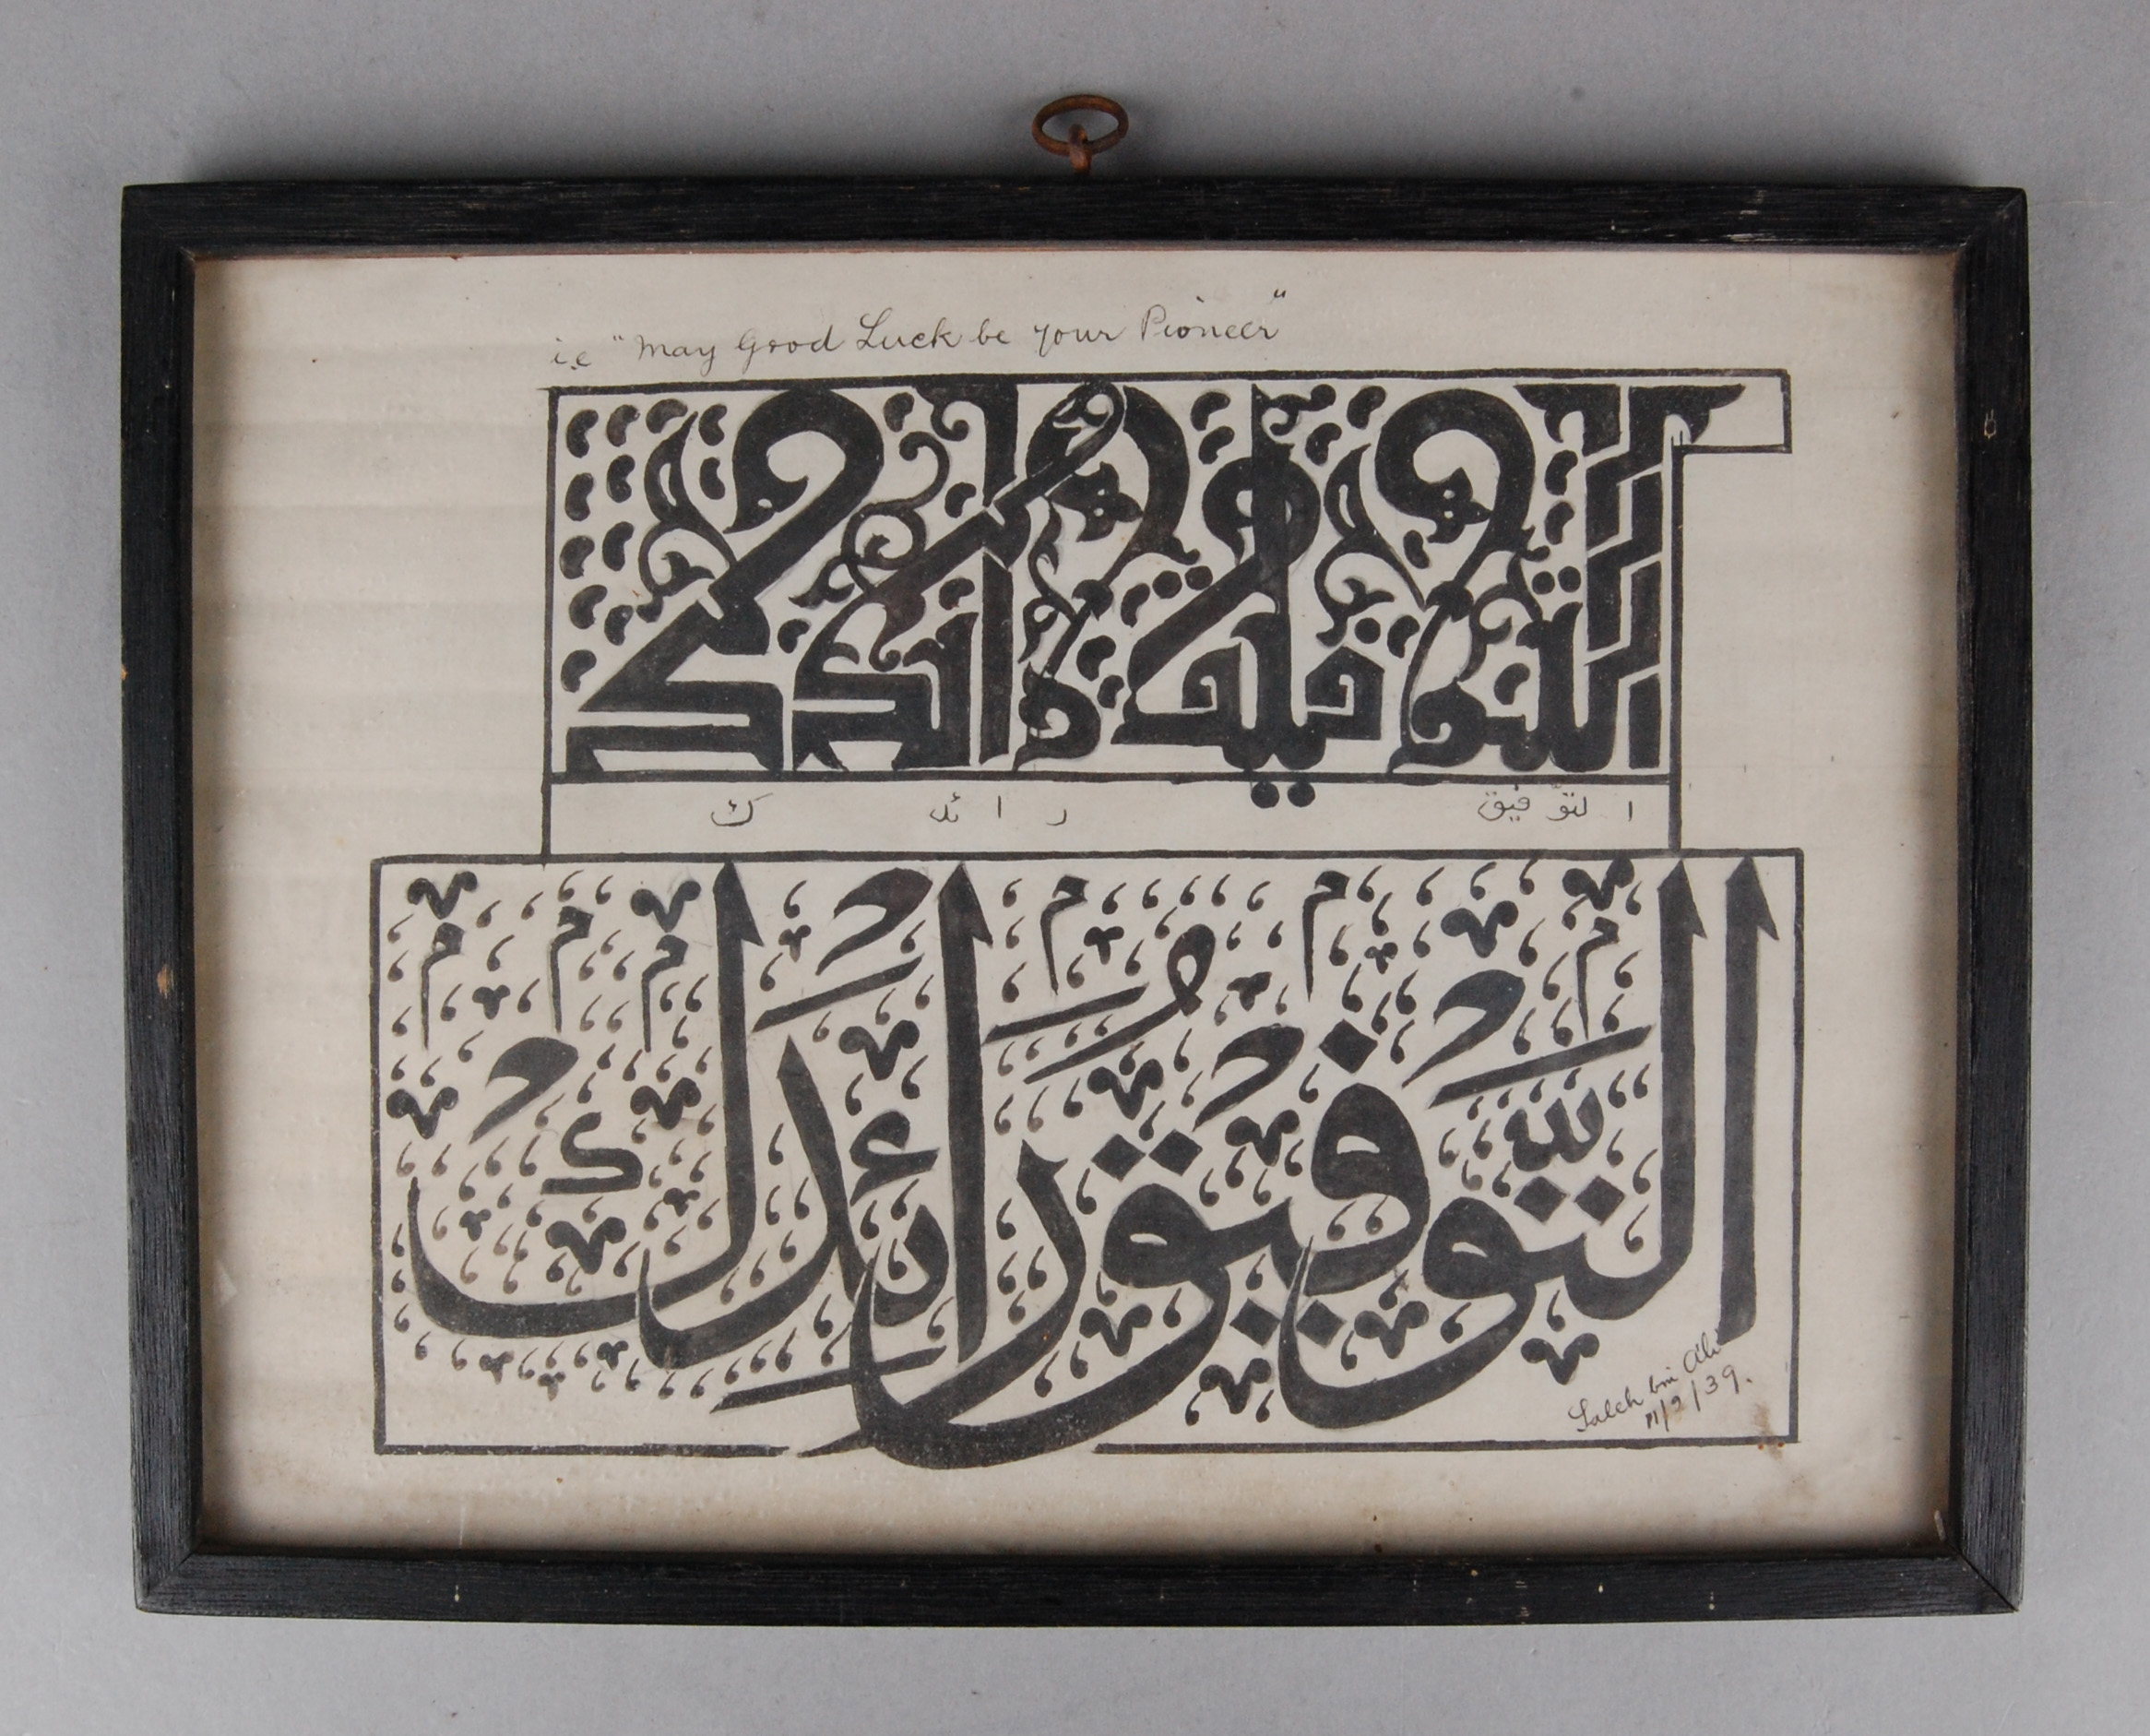 i.e "May Good Luck be your Pioneer"
التوفيق رائدك
ا لتوّ فيق ر ا ئد ك
التَّوْفِيْقُ رَائِدُكَ
Saleh bin Ali
11/9/39.